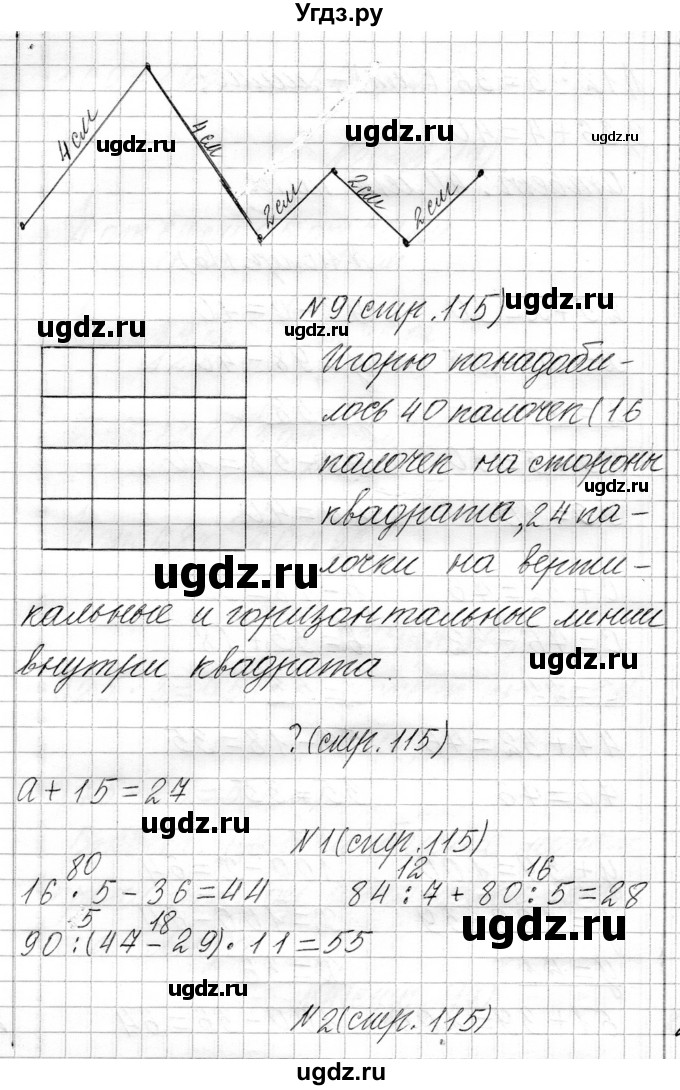 Угдз.ру
4 см
4 см
2 см
2 см
2 см
ugdz.ru
ugdz.ru
ugdz.ru
N 9 (стр. 115)
ugdz.ru
ugdz.ru
ugdz.ru
Игорю понадоби-
лось 40 палочек (16
палочек на стороны
ugdz.ru
квадрата, 24 па-
лочки на верти-
ugdz.ru
кальные и горизонтальные линии
внутри квадрата.
ugdz.ru
? (стр. 115)
a + 15 = 27
ugdz.ru
N 1 (стр. 115)
80 12 16
16 · 5 - 36 = 44 84 : 7 + 80 : 5 = 28
ugdz.ru
5 18
90 : (47 - 29) · 11 = 55
ugdz.ru
N 2 (стр. 115)
ugdz.ru